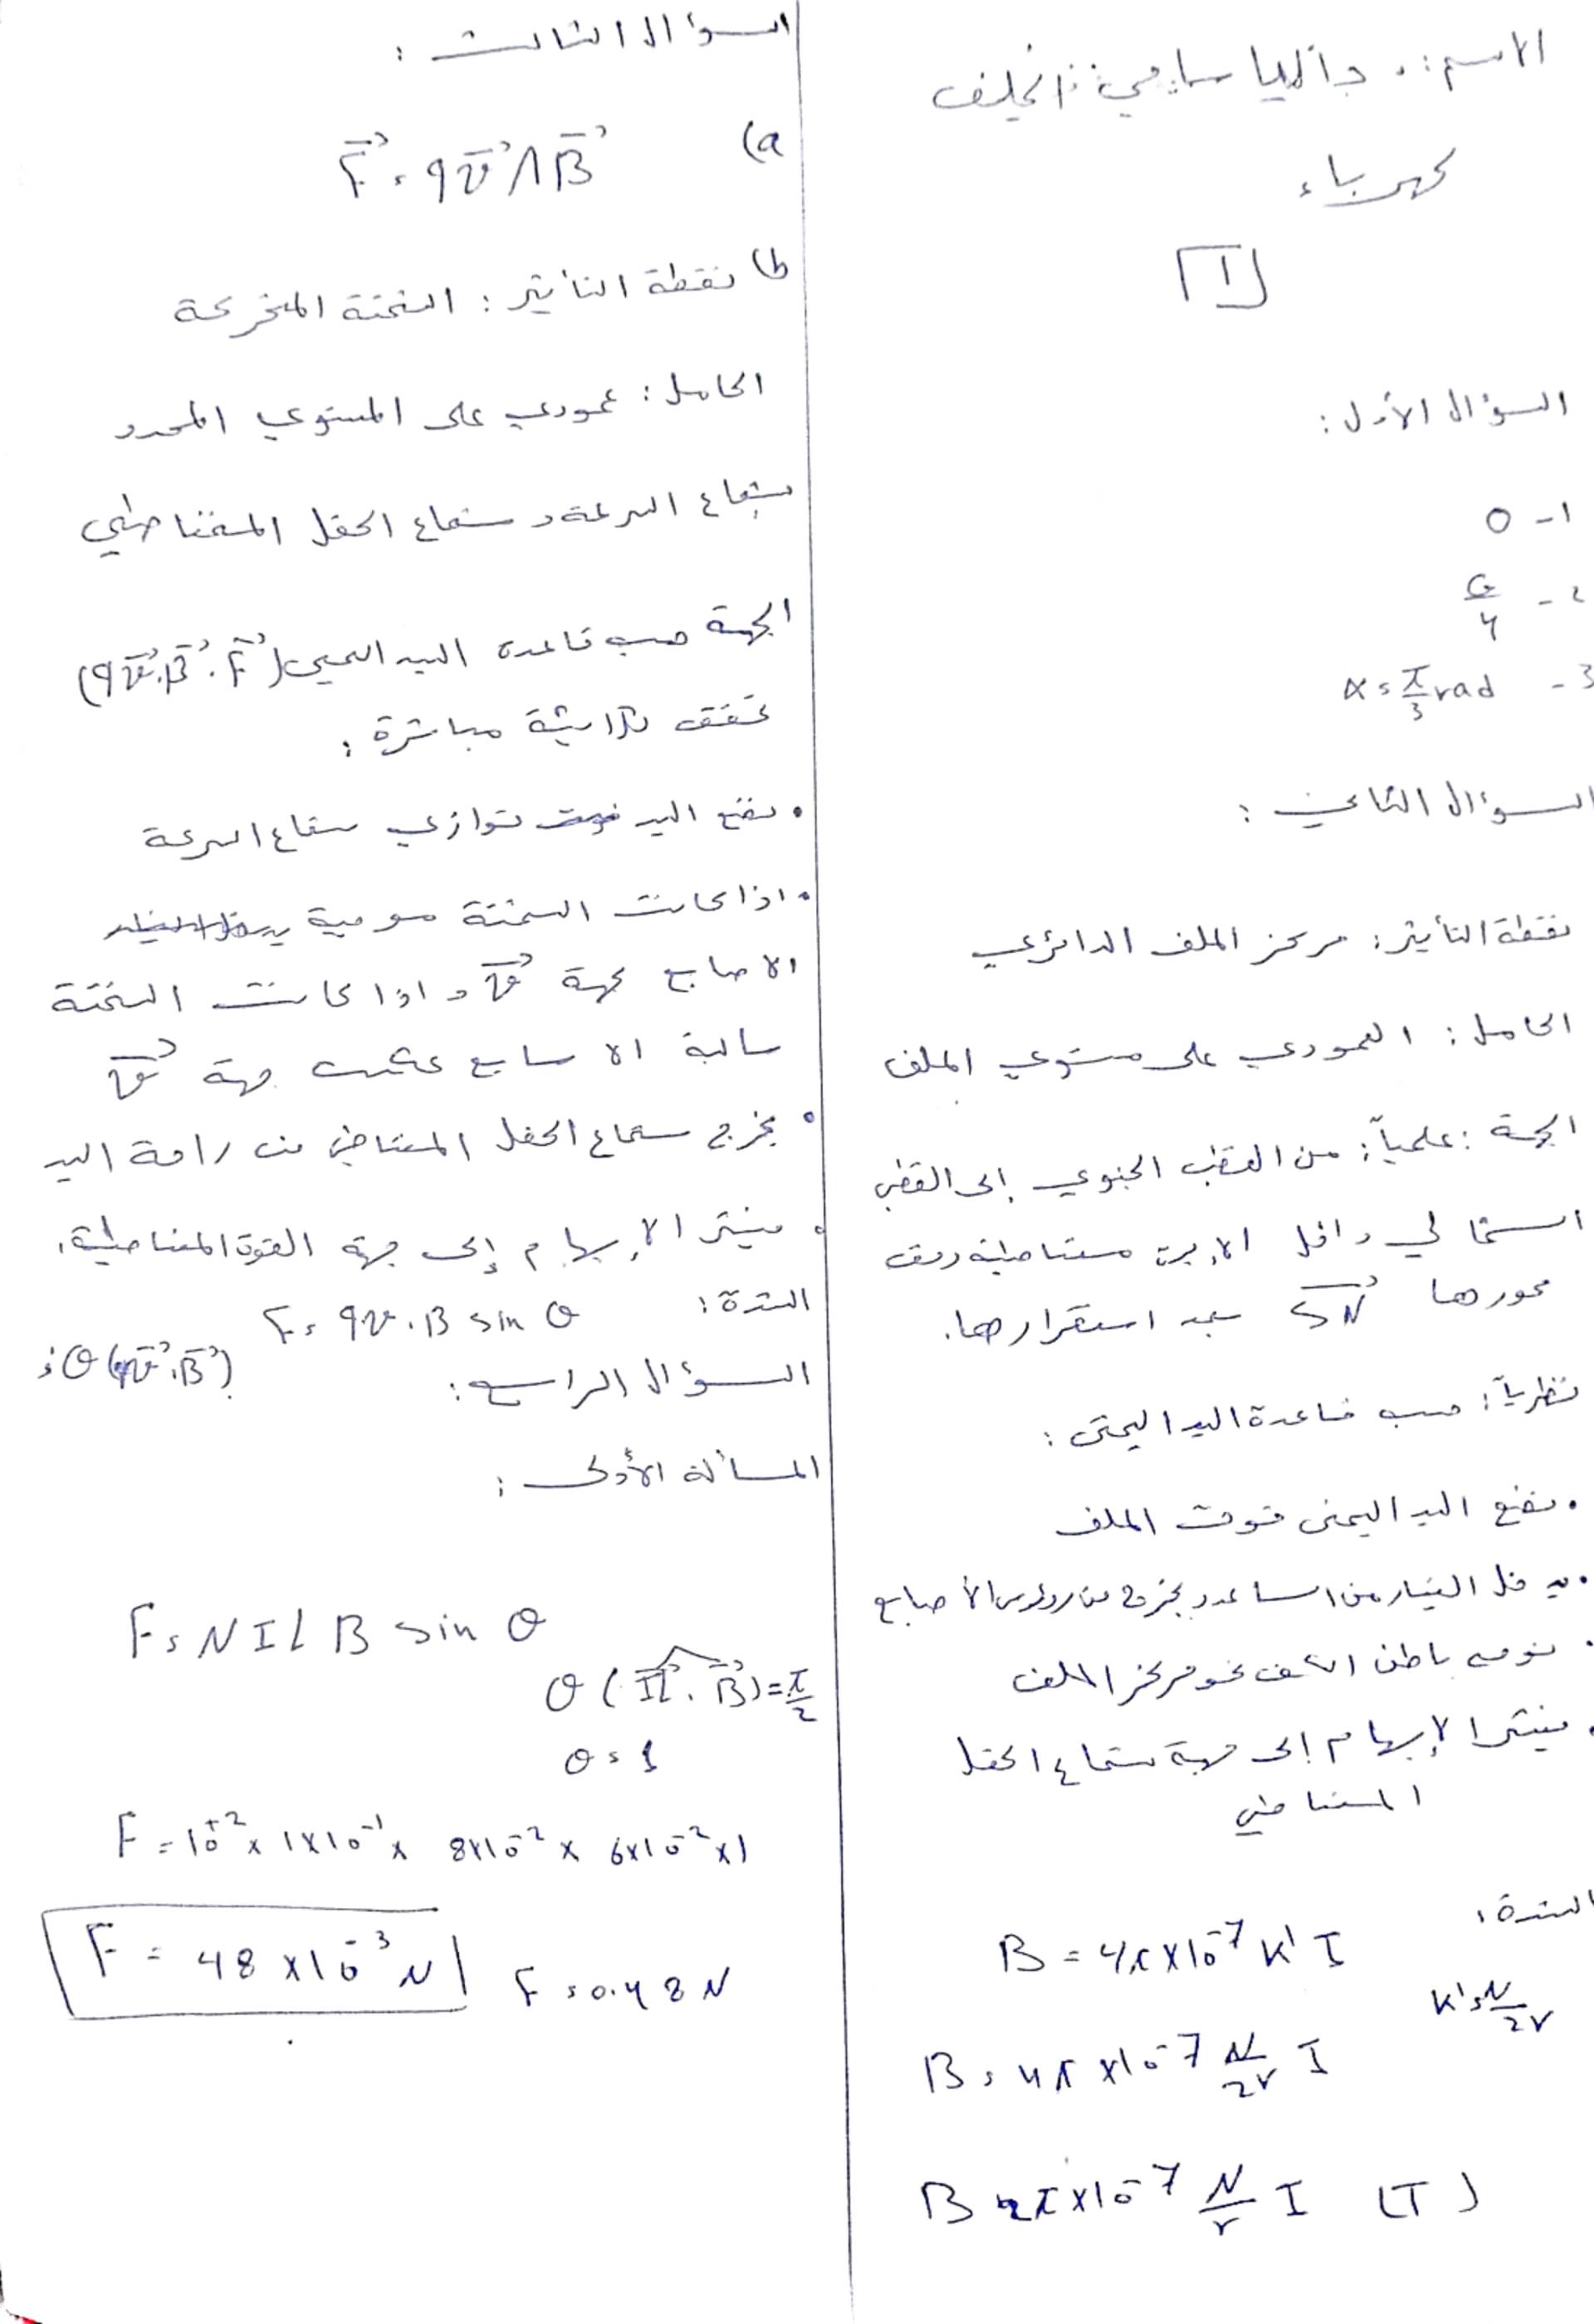 الاسم: داليا سامي الخلف
كهرباء
1
السؤال الأول:
1- 0
2- G/4
3- α = π/3 rad
السؤال الثاني:
نقطة التأثير: مركز الملف الدائري
الحامل: العمودي على مستوي الملف
الجهة: عملياً: من القطب الجنوبي إلى القطب
الشمالي داخل الإبرة مغناطيسية وفق
محورها SN⃗ بعد استقرارها.
نظرياً: حسب قاعدة اليد اليمنى:
• نضع اليد اليمنى فوق الملف
• يدخل التيار من الساعد ويخرج من رؤوس الأصابع
• نوجه باطن الكف نحو مركز الملف
• يشير الإبهام إلى جهة شعاع الحقل
المغناطيسي
الشدة:
B = 4π×10⁻⁷ K' I
K' = N/2r
B = 4π×10⁻⁷ N/2r I
B = 2π×10⁻⁷ N/r I (T)
السؤال الثالث:
a) F⃗ = qv⃗ Λ B⃗
b) نقطة التأثير: الشحنة المتحركة
الحامل: عمودي على المستوي المحدد
بشعاع السرعة وشعاع الحقل المغناطيسي
الجهة حسب قاعدة اليد اليمنى (qv⃗.B⃗.F⃗)
تحقق ثلاثية مباشرة:
• نضع اليد توازي شعاع السرعة
• اذا كانت الشحنة موجبة
الاصابع بجهة v⃗ و اذا كانت الشحنة
سالبة الاصابع عكس جهة v⃗
• يخرج شعاع الحقل المغناطيسي من راحة اليد
• يشير الإبهام إلى جهة القوة المغناطيسية.
الشدة: F = qv.B sin θ
; θ(qv⃗.B⃗)
السؤال الرابع:
المسألة الأولى:
F = NIL B sin θ
θ (IL⃗.B⃗) = π/2
θ = 1
F = 10⁺² × 1×10⁻¹ × 8×10⁻² × 6×10⁻² ×1
F = 48 ×10⁻³ N
F = 0.48 N